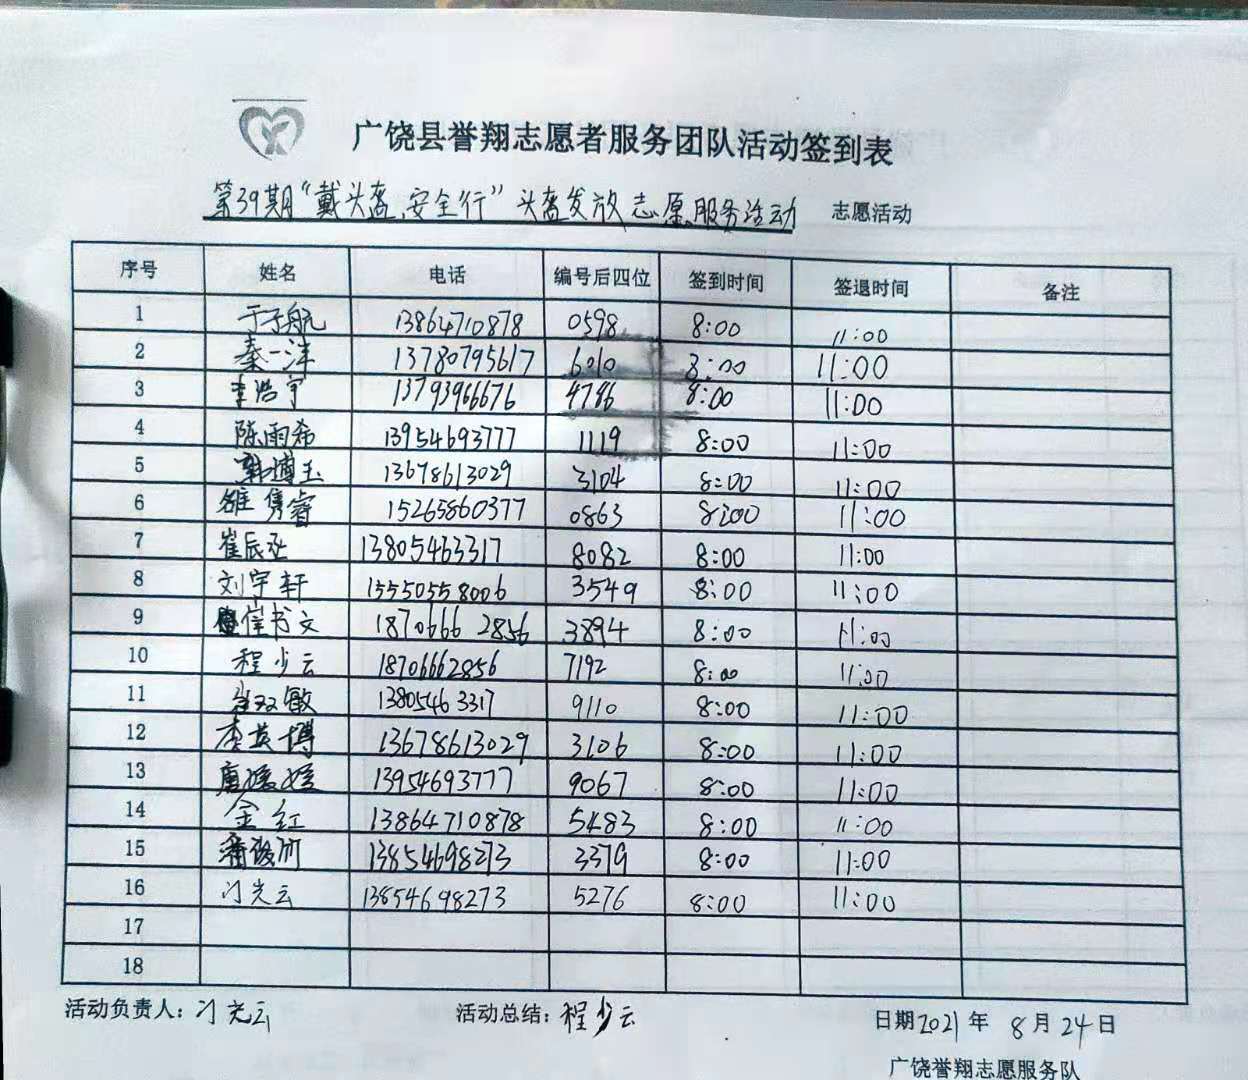 广饶县誉翔志愿者服务团队活动签到表
第39期“戴头盔、安全行”头盔发放志愿服务活动 志愿活动
序号 姓名 电话 编号后四位 签到时间 签退时间 备注
1 于子航 13864710878 0598 8:00 11:00
2 秦一洋 13780795617 6010 8:00 11:00
3 李浩宇 13793966676 4786 8:00 11:00
4 陈雨希 13954693777 1119 8:00 11:00
5 韩博玉 13678613029 3104 8:00 11:00
6 雒隽睿 15265860377 0863 8:00 11:00
7 崔辰丞 13805463317 8082 8:00 11:00
8 刘宇轩 15550558006 3549 8:00 11:00
9 崔书文 18706662856 3894 8:00 11:00
10 程少云 18706662856 7192 8:00 11:00
11 崔双敏 13805463317 9110 8:00 11:00
12 李英博 13678613029 3106 8:00 11:00
13 唐媛媛 13954693777 9067 8:00 11:00
14 金红 13864710878 5483 8:00 11:00
15 13854698273 3379 8:00 11:00
16 门光云 13854698273 5276 8:00 11:00
17
18
活动负责人: 门光云 活动总结: 程少云 日期2021年8月24日
广饶誉翔志愿服务队